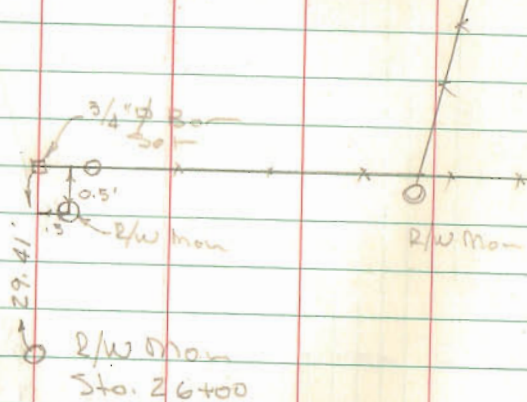 3/4"φ Bar
Set
0.5'
.5
R/W Mon
R/W Mon
29.41'
R/W Mon
Sta. 26+00